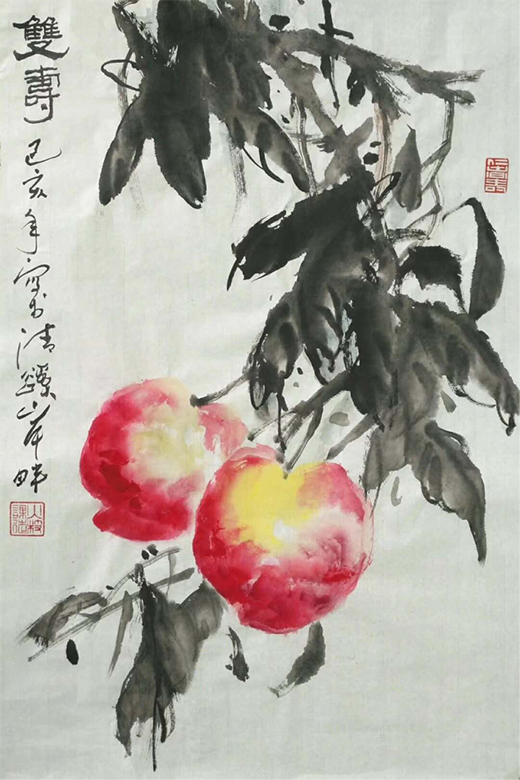 雙壽 己亥年寫於清岸畔